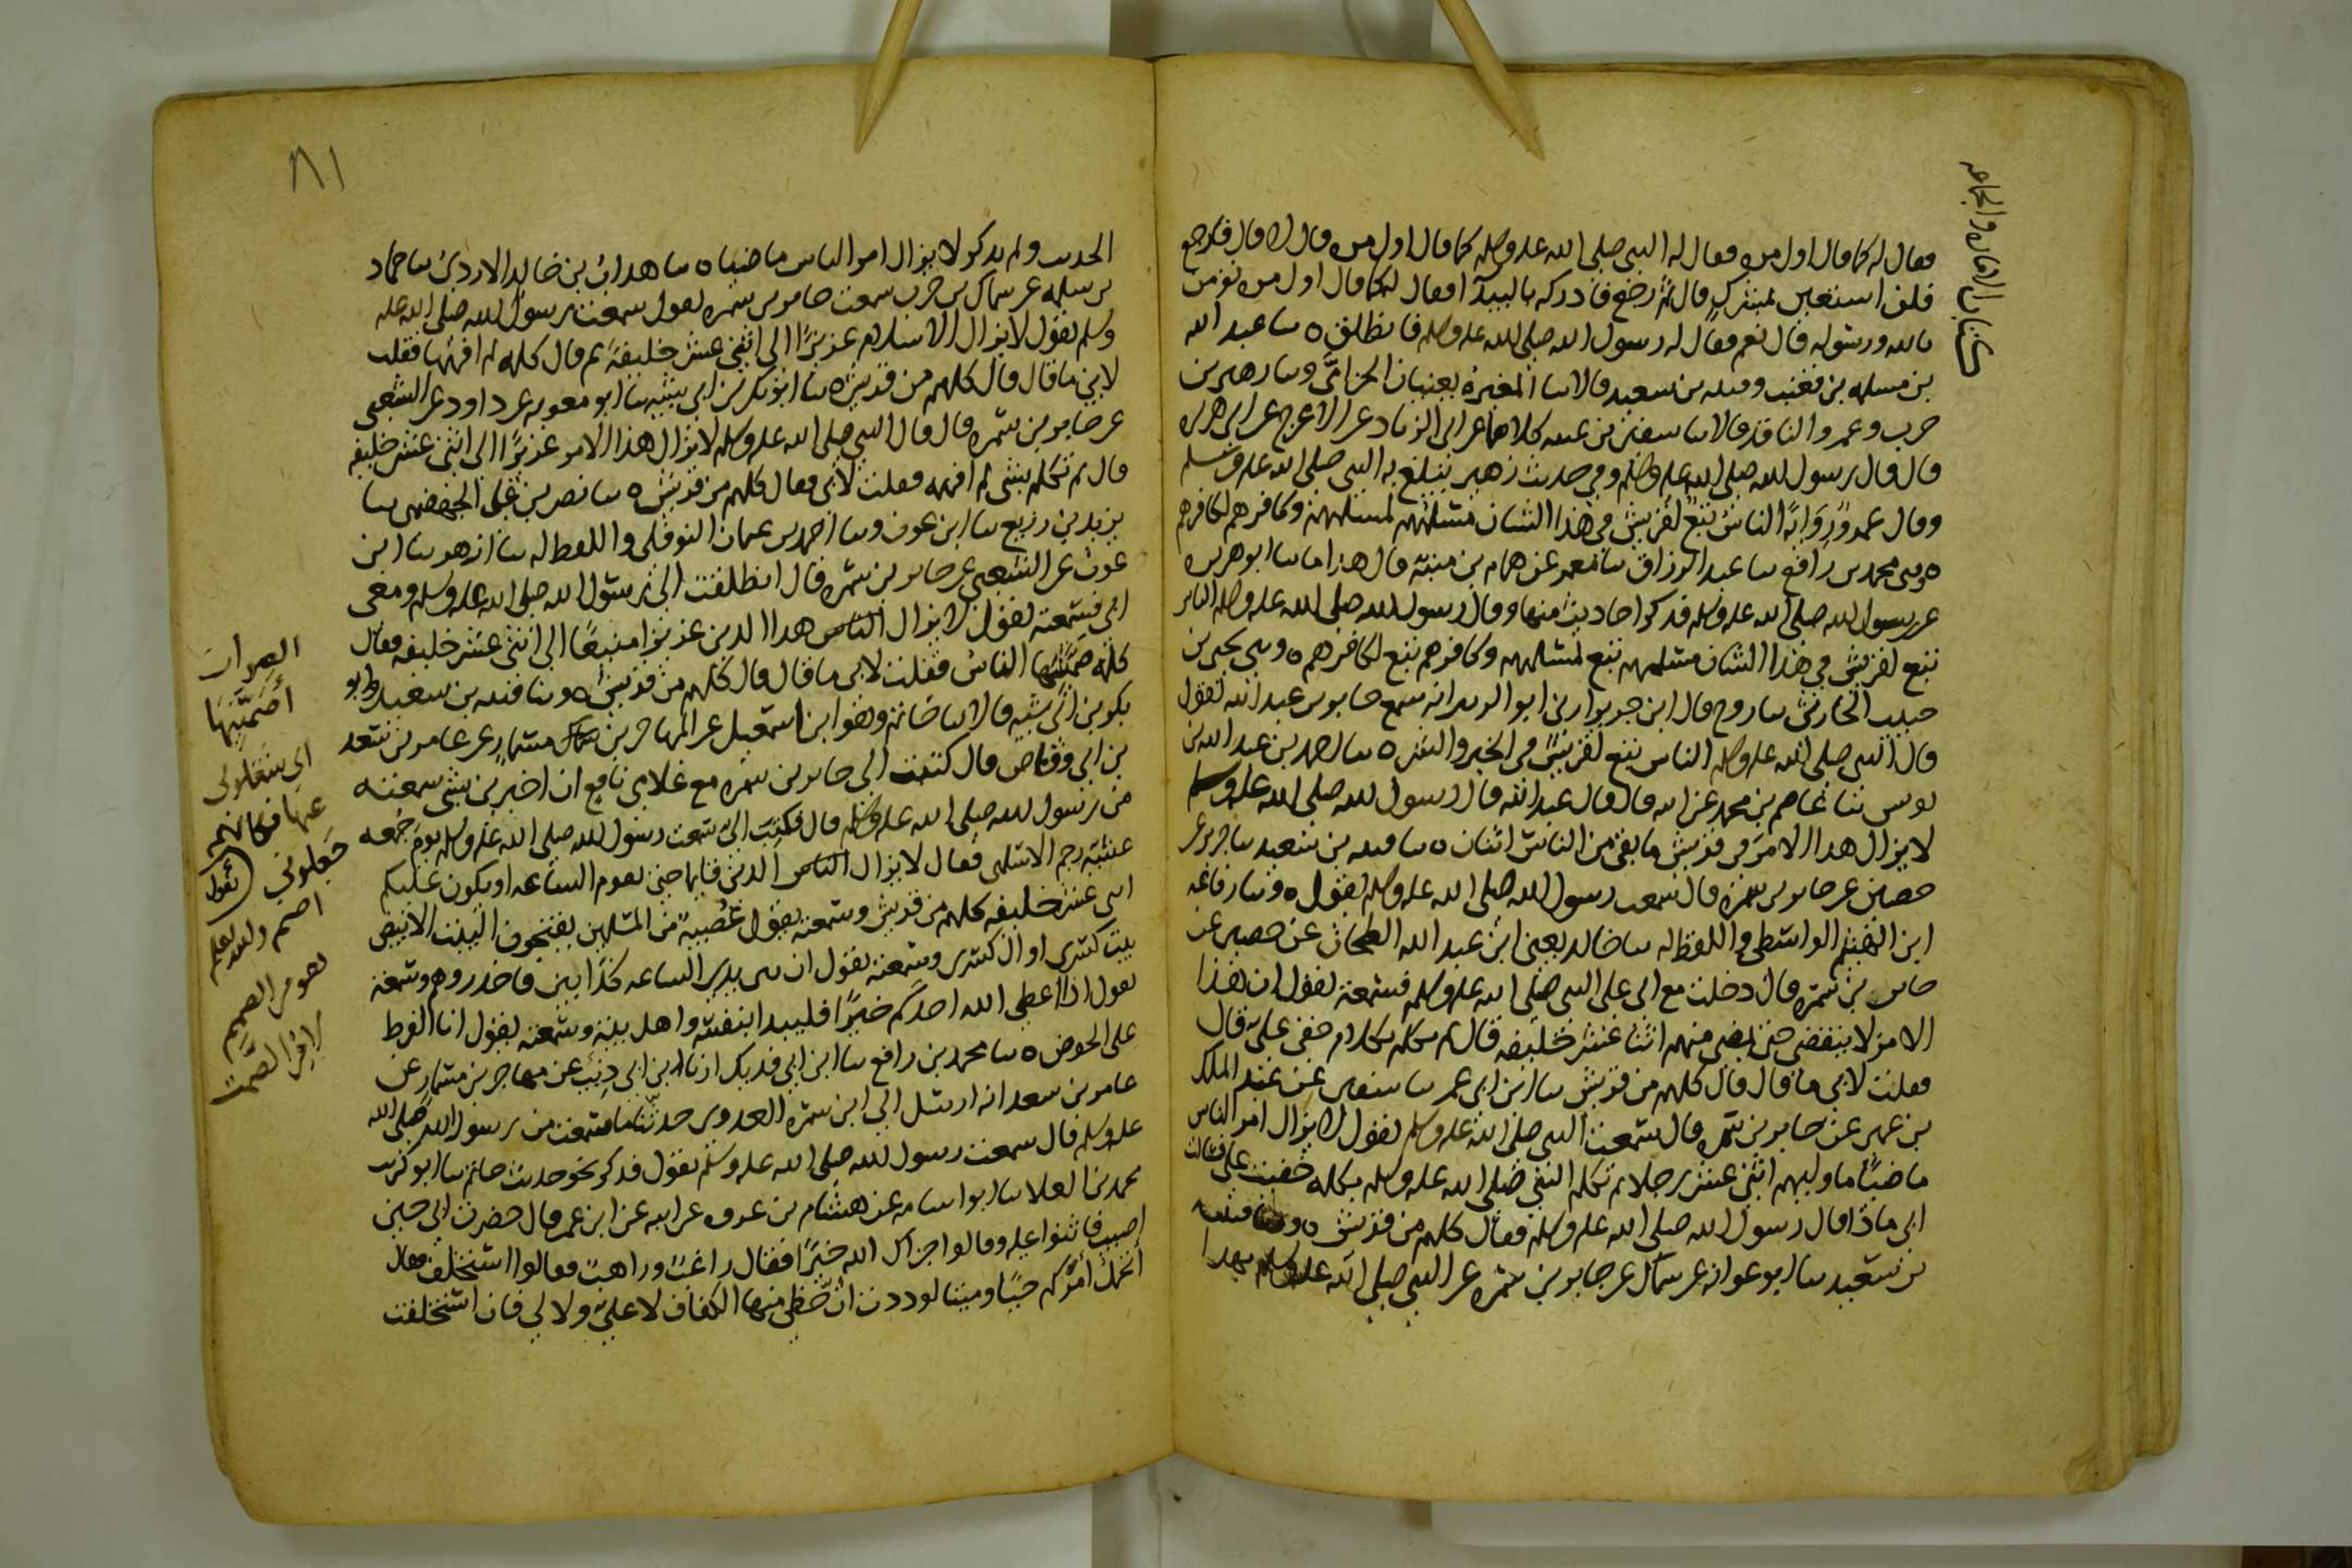 كتاب الاماره والجماعه
فقال له كما قال اول مره فقال له النبي صلى الله عليه وسلم كما قال اول مره قال لا قال فارجع
فلن استعين بمشرك قال ثم رجع فادركه بالبيدآ فقال له كما قال اول مره تومن
بالله ورسوله قال نعم فقال له رسول الله صلى الله عليه وسلم فانطلق ه سا عبد الله
بن مسلمه بن قعنب وقتيبه بن سعيد قالا سا المغيرة يعنيان الحزامي وسا زهير بن
حرب وعمرو الناقد قالا سا سفين بن عيينه كلاهما عن ابي الزناد عن الاعرج عن ابي هريره
قال قال رسول الله صلى الله عليه وسلم وفي حديث زهير يبلغ به النبي صلى الله عليه وسلم
وقال عمرو رِوَايةً الناسُ تبَعٌ لقريش في هذا الشان مسلمهم لمسلمهم وكافرهم لكافرهم
ه وسي محمد بن رافع سا عبد الرزاق سا معمر عن همام بن منبه قال هذا ما سا ابو هريره
عن رسول الله صلى الله عليه وسلم فذكر احاديث منها وقال رسول الله صلى الله عليه وسلم الناس
تبع لقريش في هذا الشان مسلمهم تبع لمسلمهم وكافرهم تبع لكافرهم ه وسي يحيى بن
حبيب الحارثي سا روح قال ابن جريج ارني ابو الزبير انه سمع جابر بن عبد الله يقول
قال النبي صلى الله عليه وسلم الناس تبع لقريش في الخير والشر ه سا احمد بن عبد الله بن
يونس ثنا عاصم بن محمد عن ابيه قال قال عبد الله قال رسول الله صلى الله عليه وسلم
لا يزال هذا الامر في قريش ما بقي من الناس اثنان ه سا قتيبه بن سعيد سا جرير عن
حصين عن جابر بن سمرة قال سمعت رسول الله صلى الله عليه وسلم يقول ه وثنا رفاعه
ابن الهيثم الواسطي واللفظ له سا خالد يعني ابن عبد الله الطحان عن حصين عن
جابر بن سمرة قال دخلت مع ابي على النبي صلى الله عليه وسلم فسمعته يقول ان هذا
الامر لا ينقضي حتى يمضي منهم اثنا عشر خليفه قال ثم تكلم بكلام خفي علي قال
فقلت لابي ما قال قال كلهم من قريش سا ابن ابي عمر سا سفين عن عبد الملك
بن عمير عن جابر بن سمره قال سمعت النبي صلى الله عليه وسلم يقول لا يزال امر الناس
ماضيًا ما وليهم اثني عشر رجلا ثم تكلم النبي صلى الله عليه وسلم بكلمه خفيت علي فسالت
ابي ماذا قال رسول الله صلى الله عليه وسلم فقال كلهم من قريش ه وثنا قتيبه
بن سعيد سا ابو عوانه عن سماك عن جابر بن سمره عن النبي صلى الله عليه وسلم بهذا
٨١
الحديث ولم يذكر لا يزال امر الناس ماضيا ه سا هداب بن خالد الازدي سا حماد
بن سلمه عن سماك بن حرب سمعت جابر بن سمره يقول سمعت رسول الله صلى الله عليه
وسلم يقول لا يزال الاسلام عزيزًا الى اثني عشر خليفةً ثم قال كلمه لم افهمها فقلت
لابي ما قال قال كلهم من قريش ه سا ابو بكر بن ابي شيبه سا ابو معويه عن داود عن الشعبي
عن جابر بن سمره قال قال النبي صلى الله عليه وسلم لا يزال هذا الامر عزيزًا الى اثني عشر خليفه
قال ثم تكلم بشي لم افهمه فقلت لابي فقال كلهم من قريش ه سا نصر بن علي الجهضمي سا
يزيد بن زريع سا ابن عون وسا احمد بن عثمان النوفلي واللفظ له سا ازهر سا ابن
عون عن الشعبي عن جابر بن سمره قال انطلقت الى رسول الله صلى الله عليه وسلم ومعي
ابي فسمعته يقول لا يزال الناس هذا الدين عزيزا منيعًا الى اثني عشر خليفه فقال
كلمة صمّتنيها الناس فقلت لابي ما قال قال كلهم من قريش ه وسا قتيبه بن سعيد وابو
بكر بن ابي شيبه قالا سا حاتم وهو ابن اسمعيل عن المهاجر بن مسمار عن عامر بن سعد
بن ابي وقاص قال كتبت الى جابر بن سمره مع غلامي نافع ان اخبرني بشي سمعته
من رسول الله صلى الله عليه وسلم قال فكتبَ اليّ سمعت رسول الله صلى الله عليه وسلم يوم جمعه
عشيّه رجم الاسلمي فقال لا يزال الناس الدين قايما حتى تقوم الساعه او يكون عليكم
اثنى عشر خليفه كلهم من قريش وسمعته يقول عُصيبةٌ من المسلمين يفتتحون البيت الابيض
بيت كسرى او ال كسرى وسمعته يقول ان بين يدي الساعه كذابين فاحذروهم وسمعته
يقول اذا اعطى الله احدكم خيرًا فليبدا بنفسه واهل بيته وسمعته يقول انا الفرط
على الحوض ه سا محمد بن رافع سا ابن ابي فديك ارنا ابن ابي ذئب عن مهاجر بن مسمار عن
عامر بن سعد انه ارسل الى ابن سمره العدوي حدثنا ما سمعت من رسول الله صلى الله
عليه وسلم قال سمعت رسول الله صلى الله عليه وسلم يقول فذكر نحو حديث حاتم سا ابو كريب
محمد بن العلا سا ابو اسامه عن هشام بن عروه عن ابيه عن ابن عمر قال حضرت ابي حين
اصيب فاثنوا عليه وقالوا جزاك الله خيرًا فقال راغبٌ وراهبٌ فقالوا استخلف فقال
أتحمّل أمركم حيًا وميتا لوددت انّ حظي منها الكفاف لا عليّ ولا لي فان استخلفت
الصواب
أصَمَّنِيهَا
اي شغلوني
عنها فكانهم
جعلوني (تقول)
اصم والله اعلم
فهو من الصمم
لا من الصمت